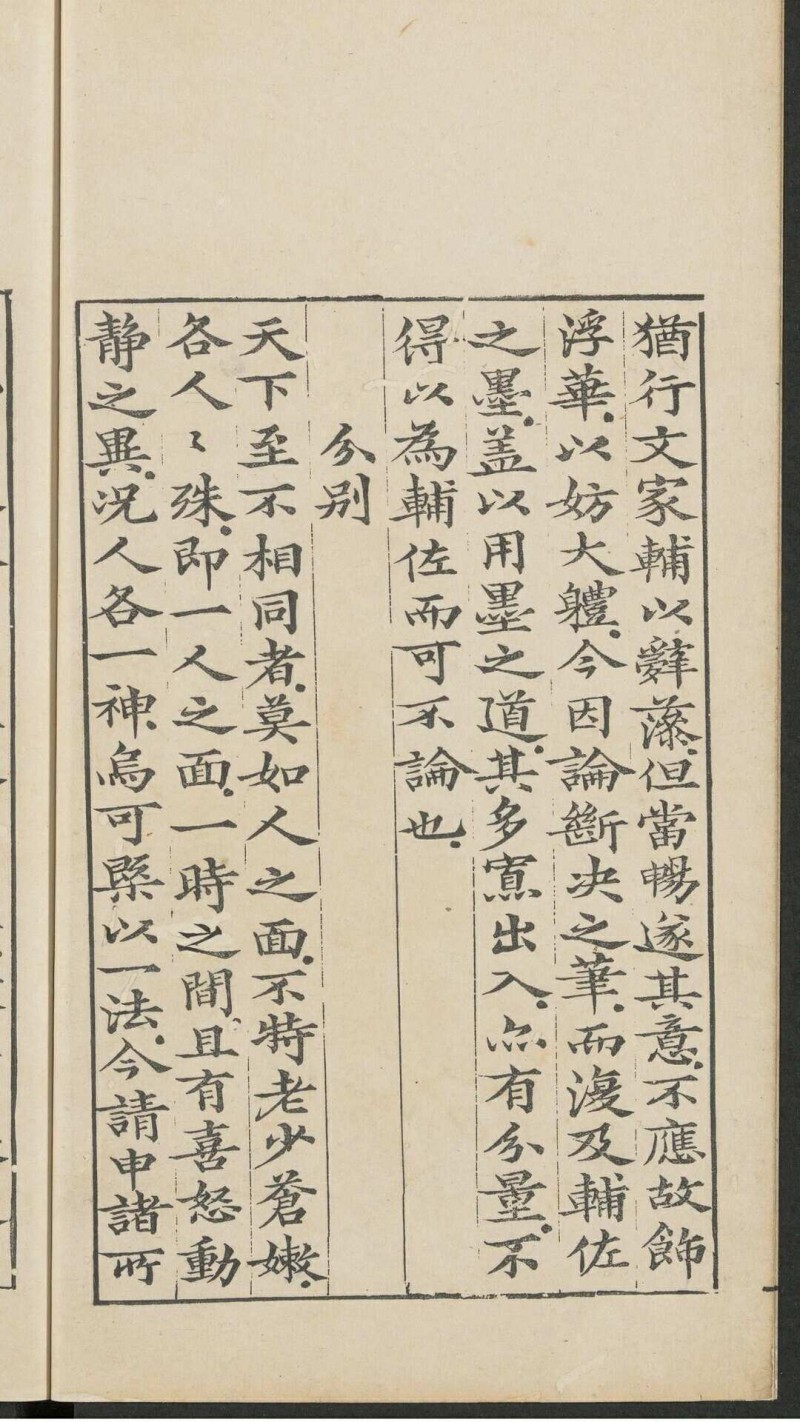 猶行文家輔以辭藻但當暢遂其意不應故飾
浮華以妨大軆今因論斷决之筆而漫及輔佐
之墨盖以用墨之道其多寡出入亦有分量不
得以為輔佐而可不論也
分别
天下至不相同者莫如人之面不特老少蒼嫩
各人〻殊即一人之面一時之間且有喜怒動
静之異况人各一神烏可槩以一法今請申諸所